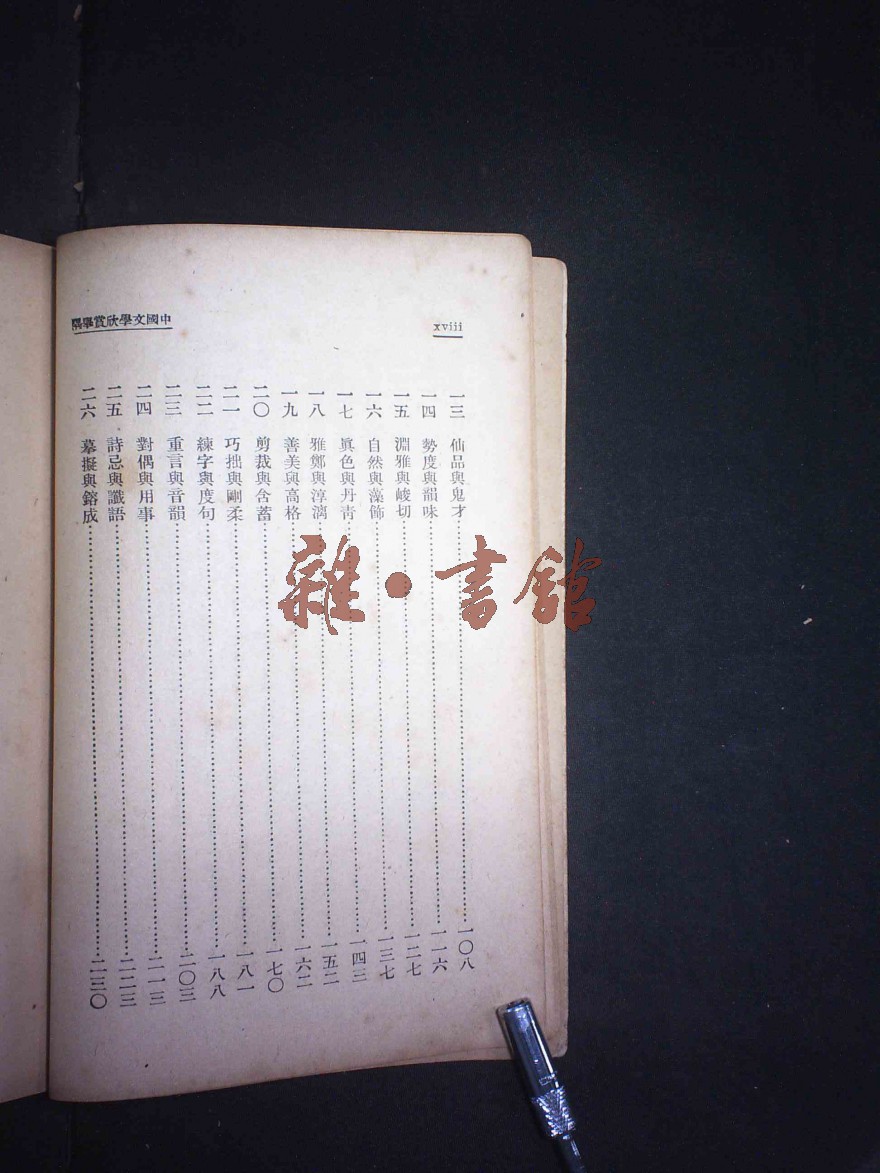 中國文學欣賞舉隅
xviii
一三 仙品與鬼才 一〇八
一四 勢度與韻味 一一六
一五 淵雅與峻切 一二七
一六 自然與藻飾 一三七
一七 眞色與丹青 一四三
一八 雅鄭與淳漓 一五二
一九 善美與高格 一六二
二〇 剪裁與含蓄 一七〇
二一 巧拙與剛柔 一八一
二二 練字與度句 一八八
二三 重言與音韻 二〇三
二四 對偶與用事 二一三
二五 詩忌與讖語 二二三
二六 摹擬與鎔成 二三〇
雜·書館